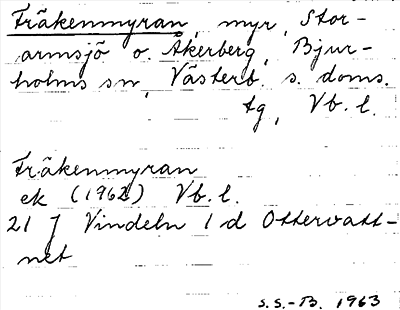 Fräkenmyran, myr, Stor-
armsjö o. Åkerberg, Bjur-
holms sn, Västerb. s. doms.
tg, Vb. l.
Fräkenmyran
ek (1962) Vb. l.
21 J Vindeln 1 d Ottervatt-
net
S.S.-B. 1963